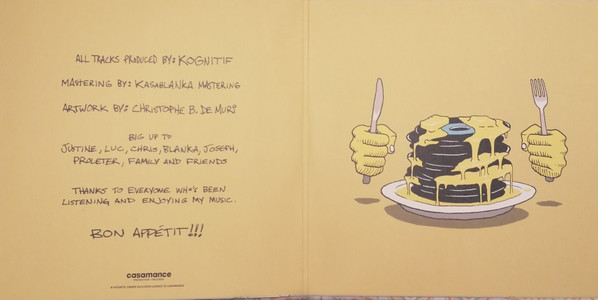 ALL TRACKS PRODUCED BY: KOGNITIF
MASTERING BY: KASABLANKA MASTERING
ARTWORK BY: CHRISTOPHE B. DE MURI
BIG UP TO
JUSTINE, LUC, CHRIS, BLANKA, JOSEPH,
PROLETER, FAMILY AND FRIENDS
THANKS TO EVERYONE WHO'S BEEN
LISTENING AND ENJOYING MY MUSIC.
BON APPÉTIT!!!
casamance